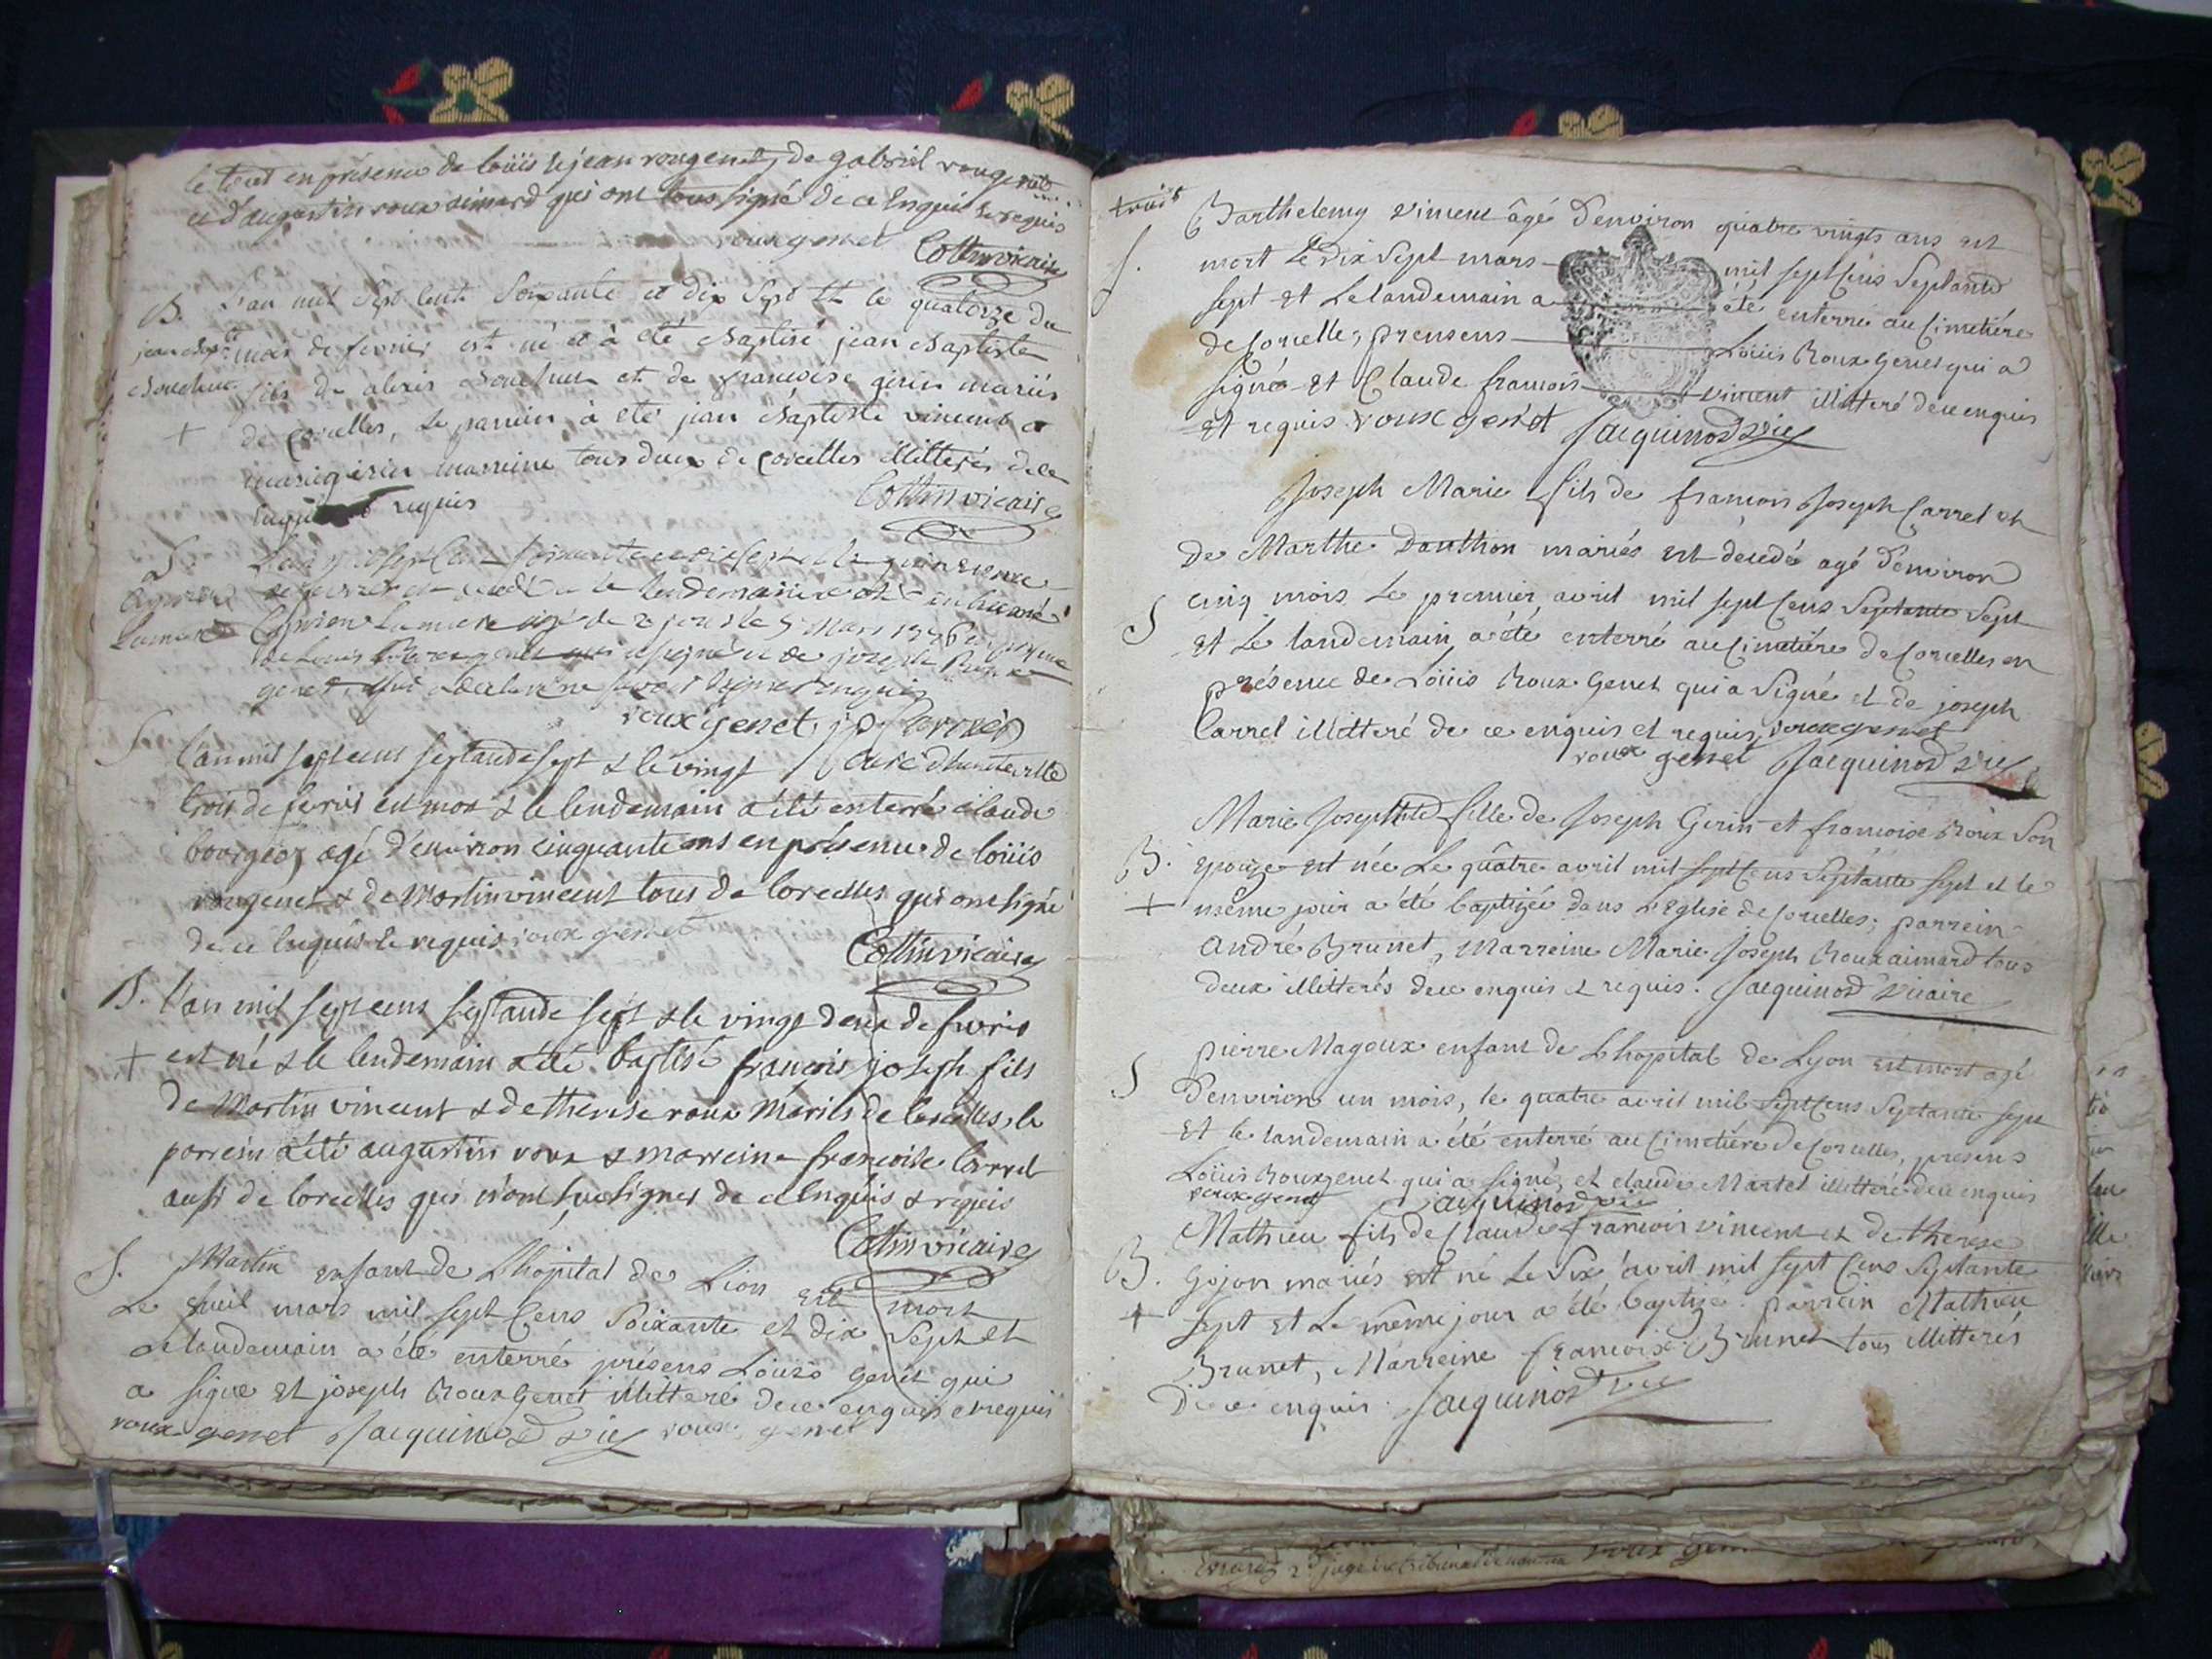 le tout en présence de loüis & jean rougenet, de gabriel rougenet
et d'augustin roux aimard qui ont tous signé de ce Enquis & requis
roux genet Cottin vicaire
B. L'an mil Sept Cent Soixante et dix Sept et le quatorze du
jean bapt mois de fevrier est né et à été baptisé jean baptiste
bouchut fils de alexis bouchut et de françoise girin mariés
+ de Corcelles, le parrein à eté jean baptiste vincent et
marie girin marreine tous deux de Corcelles illitterés de ce
requis Cottin vicaire
S. L'an mil sept Cent soixante et dix sept et le
de fevrier est et le lendemain a été
Lumiere Lumiere agé de 2 jours le 5 mars 1776 en
de Louis Roux genet qui a signé et de joseph Roux
genet qui a declaré ne savoir signer enquis
roux genet, j p
S L'an mil sept cens septande sept & le vingt Curé d'hauteville
trois de fevrié est mor & le lendemain a été enterré claude
bourgeoz agé d'environ cinquante ans en présence de loüis
rougenet & de Martin vincent tous de Corcelles qui ont signé
de ce Enquis & requis roux genet
Cottin vicaire
B. L'an mil sept cens septande sept & le vingt deux de fevrié
+ est né & le lendemain a été baptisé françois joseph fils
de Martin vincent & de therese roux Mariés de Corcelles, le
parrein a été augustin roux & marreine francoise Carrel
aussi de Corcelles qui n'ont sue signer de ce Enquis & requis
Cottin vicaire
S. Martin enfant de L'hôpital de Lion est mort
Le hueil mars mil sept Cens Soixante et dix Sept et
Le landemain a été enterré présens Loüis genet qui
a signé et joseph Roux Genet illitteré de ce enquis et requis
roux genet Jacquinod vic roux genet
trois
Barthelemy vincent âgé d'environ quatre vingts ans est
S. mort Le dix Sept mars mil sept Cens Septante
sept et Le landemain a été enterré au Cimetiére
de Corcelle, presens Loüis Roux Genet qui a
signé et Claude francois vincent illitteré de ce enquis
et requis roux genet Jacquinod vic
Joseph Marie fils de francois Joseph Carrel et
de Marthe Danthon mariés est decedé agé d'environ
cinq mois Le premier avril mil sept Cens Septante Sept
S et Le landemain a été enterré au Cimetiére de Corcelles en
présence de Loüis Roux Genet qui a Signé et de joseph
Carrel illitteré de ce enquis et requis, roux genet
roux genet Jacquinod vic
Marie Josephte fille de Joseph Girin et francoise Roux Son
B. epouze est née Le quâtre avril mil sept Cens Septante sept et le
+ même jour a été baptizée dans L'Eglise de Corcelles; parrein
André Brunet, Marreine Marie Joseph Roux aimard tous
deux illitterés de ce enquis & requis. Jacquinod vicaire
S pierre Mageux enfant de L'hopital de Lyon est mort agé
d'environ un mois, le quatre avril mil sept Cens Septante sept
Et le landemain a été enterré au Cimetiére de Corcelles, presens
Loüis Roux genet qui a signé, et claude Martel illitteré de ce enquis
roux genet Jacquinod vic
Mathieu fils de Claude francois vincent et de therese
B. Gojon mariés est né Le Six avril mil sept Cens Septante
+ sept et Le même jour a été baptizé. parrein Mathieu
Brunet, Marreine francoise Brunet tous illitterés
De ce enquis. Jacquinod vic
2d juge du tribunal de roux gen